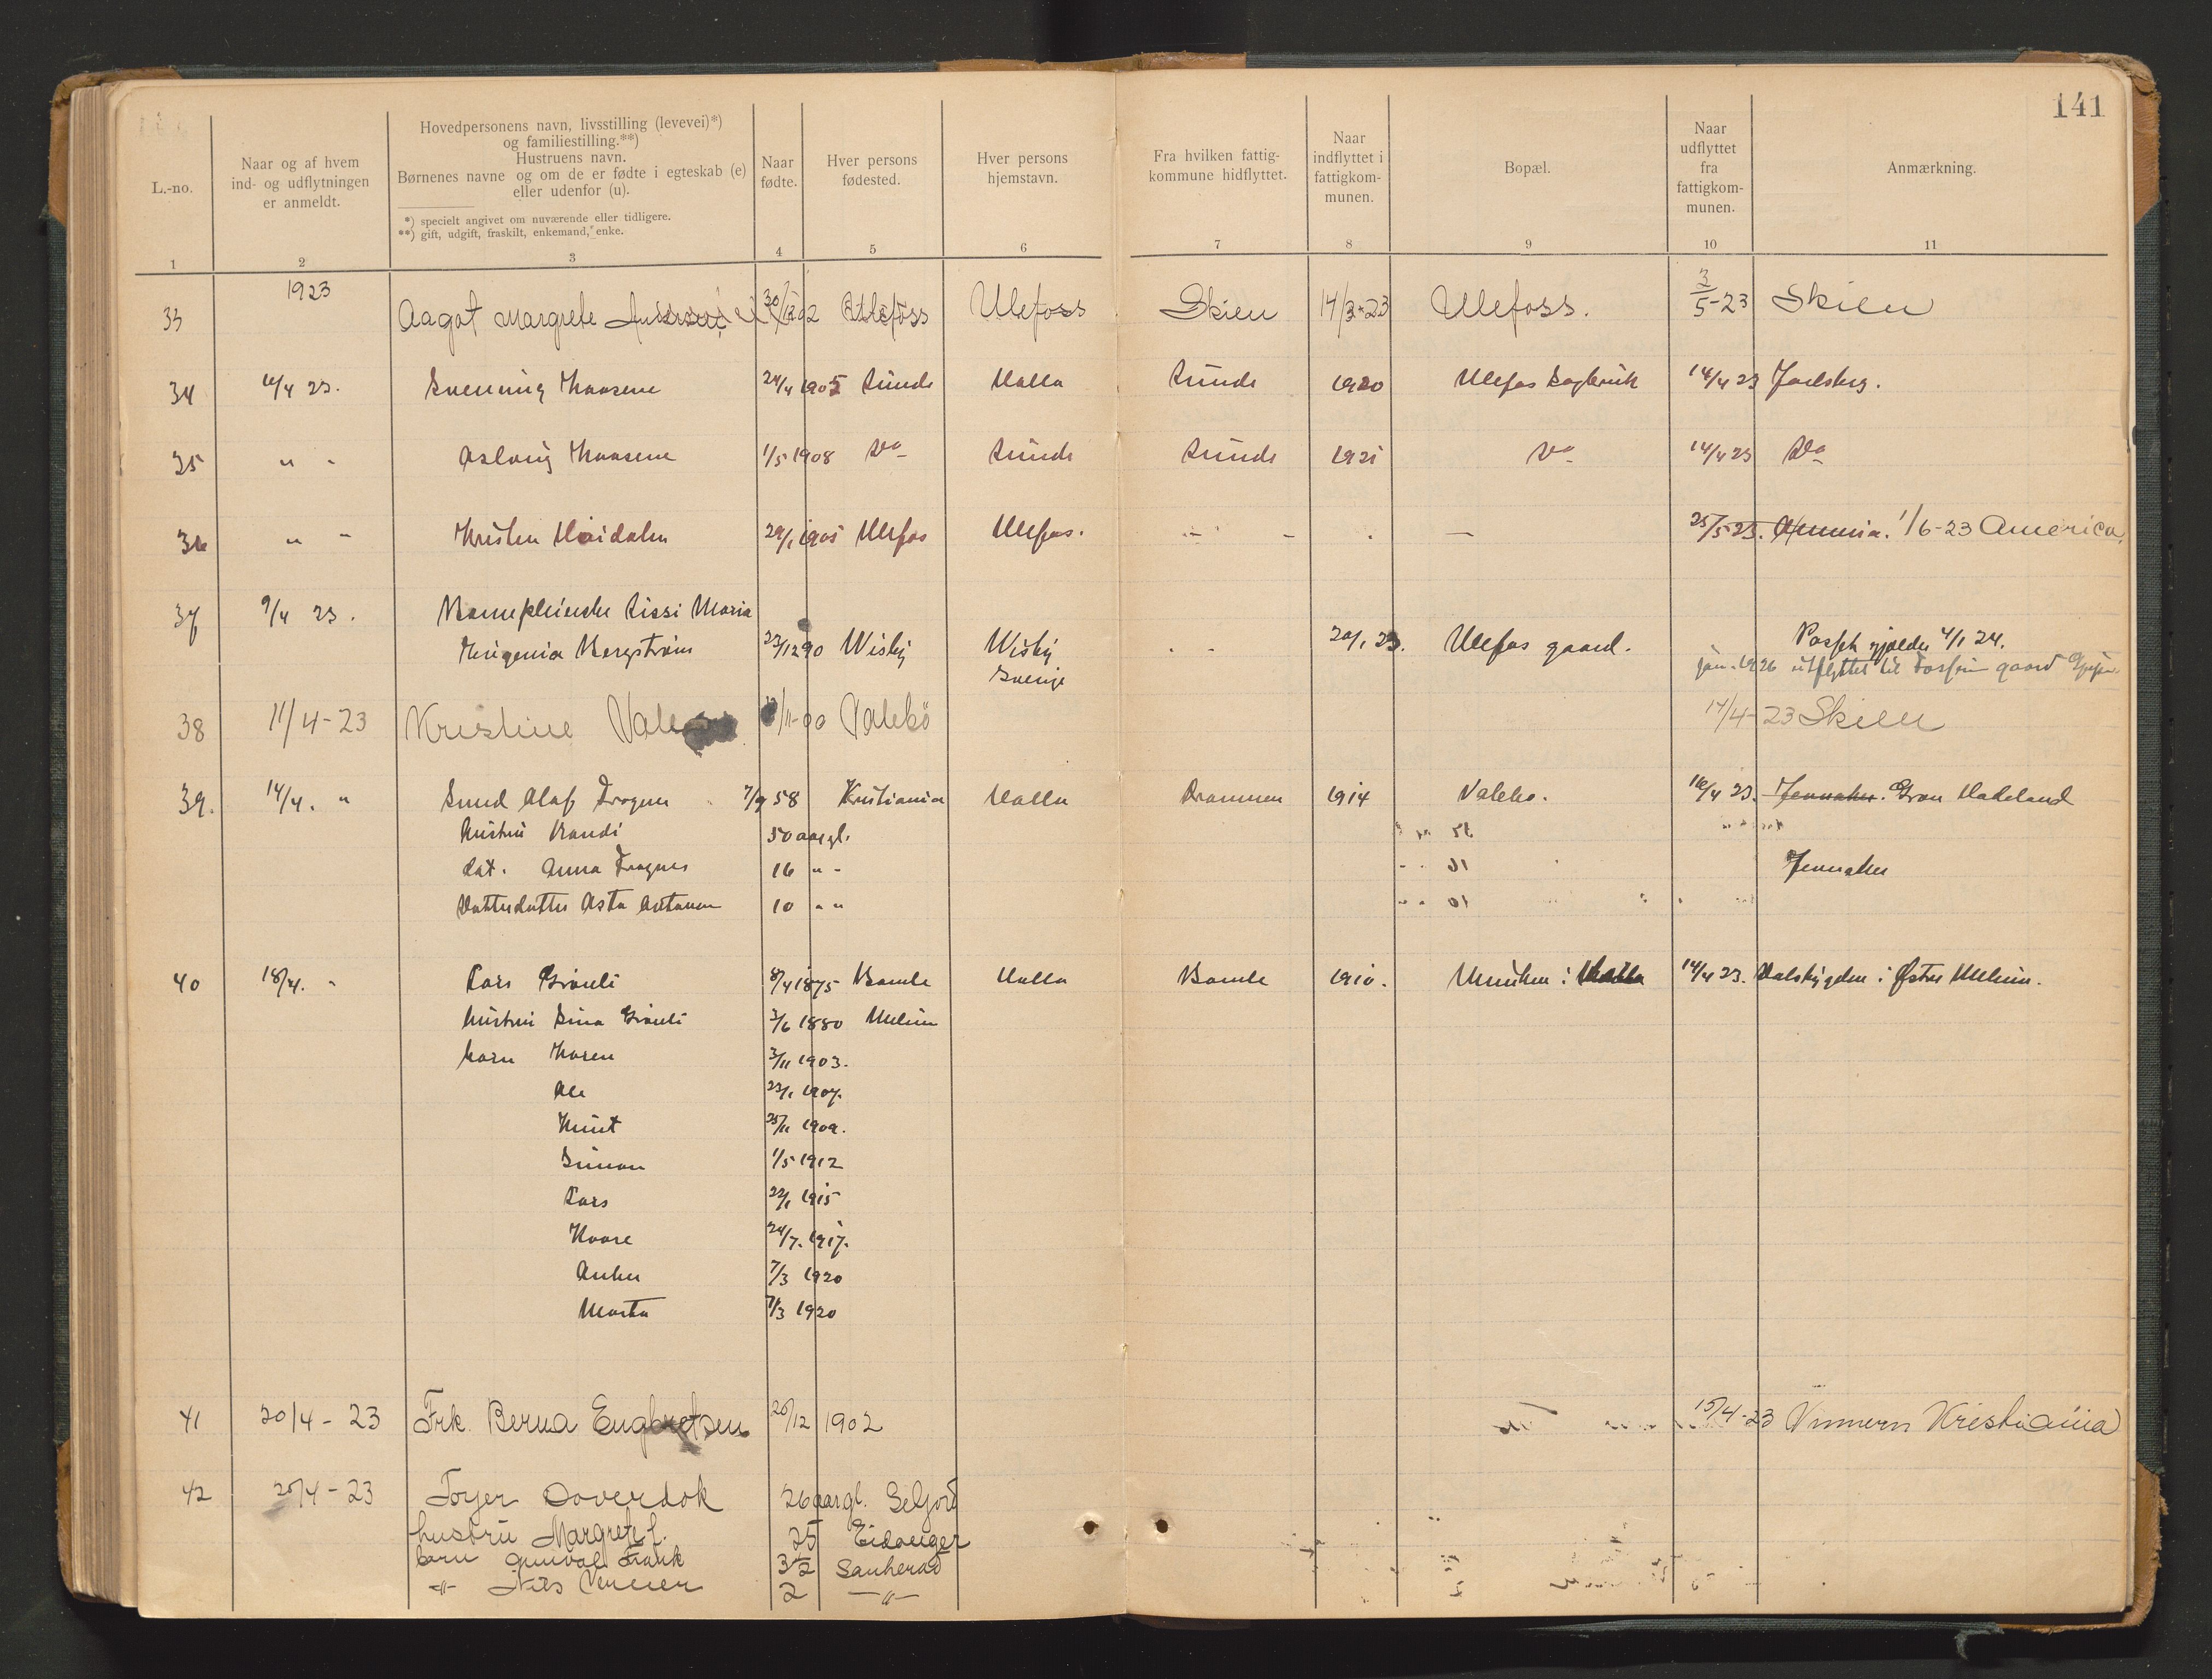 141
L.-no.
Naar og af hvem
ind- og udflytningen
er anmeldt.
Hovedpersonens navn, livsstilling (levevei)*)
og familiestilling.**)
Hustruens navn.
Børnenes navne og om de er fødte i egteskab (e)
eller udenfor (u).
*) specielt angivet om nuværende eller tidligere.
**) gift, udgift, fraskilt, enkemand, enke.
Naar
fødte.
Hver persons
fødested.
Hver persons
hjemstavn.
Fra hvilken fattig-
kommune hidflyttet.
Naar
indflyttet i
fattigkom-
munen.
Bopæl.
Naar
udflyttet
fra
fattigkom-
munen.
Anmærkning.
1 2 3 4 5 6 7 8 9 10 11
1923
33 Aagot Margrete Ulefoss Skien 14/3-23 Ulefoss. 3/5-23 Skien
34 11/4 23. Svenning Kaasene 24/4 1905 Lunde Holla Lunde 1920 Ulefos Sagbruk 14/4 23 Jarlsberg.
35 " - Aslaug Kaasene 1/5 1908 Do Lunde Lunde 1921 Do 14/4 23 Do
36 " - Kristen Høidalen 29/1 1905 Ulefos Ulefos. - - . - 25/5 23. America. 1/6-23 America.
37 9/4 23. Barnepleierske Sissi Maria
Eugenia Bergstrøm 23/12 90 Wisby Wisby - - 20/1 23. Ulefos gaard. Passet gjelder 4/1 24.
Sverige jan. 1926 utflyttet til Fossum gaard Gjerpen.
38 11/4-23 Kristine 11-00 Valebø 14/4-23 Skien
39. 14/4. " Svend Olaf Drogen 7/9 58 Kristiania Holla Drammen 1914 Valebo. 16/4 23. Jevnaker. Gran Hadeland
hustru Randi 50 aar gl.
dat. Anna 16 " - Jevnaker
Datterdatter Asta 10 " "
40 18/4. - Lars Grønli 8/4 1875 Bamle Holla Bamle 1910. i Holla 14/4 23. Valsbygden i Østre Melum.
hustru Sina Grønli 3/6 1880 Melum
barn Karen 3/11 1903.
Ole 23/1 1907.
Knut 25/11 1909.
Simon 1/5 1912
Lars 22/1 1915
Kaare 24/7. 1917.
Anker 7/3 1920
Marta 7/3 1920
41 20/4-23 Frk. Berna Engbretsen 20/12 1902 15/4-23 Vinnern Kristiania
42 20/4-23 Torjer Doverdok 26 aar gl. Seljord
hustru Margrete f. 25 Eidanger
barn Gunval Frank 3 1/2 Sauherad
-"- Nils Verner 2 -"-